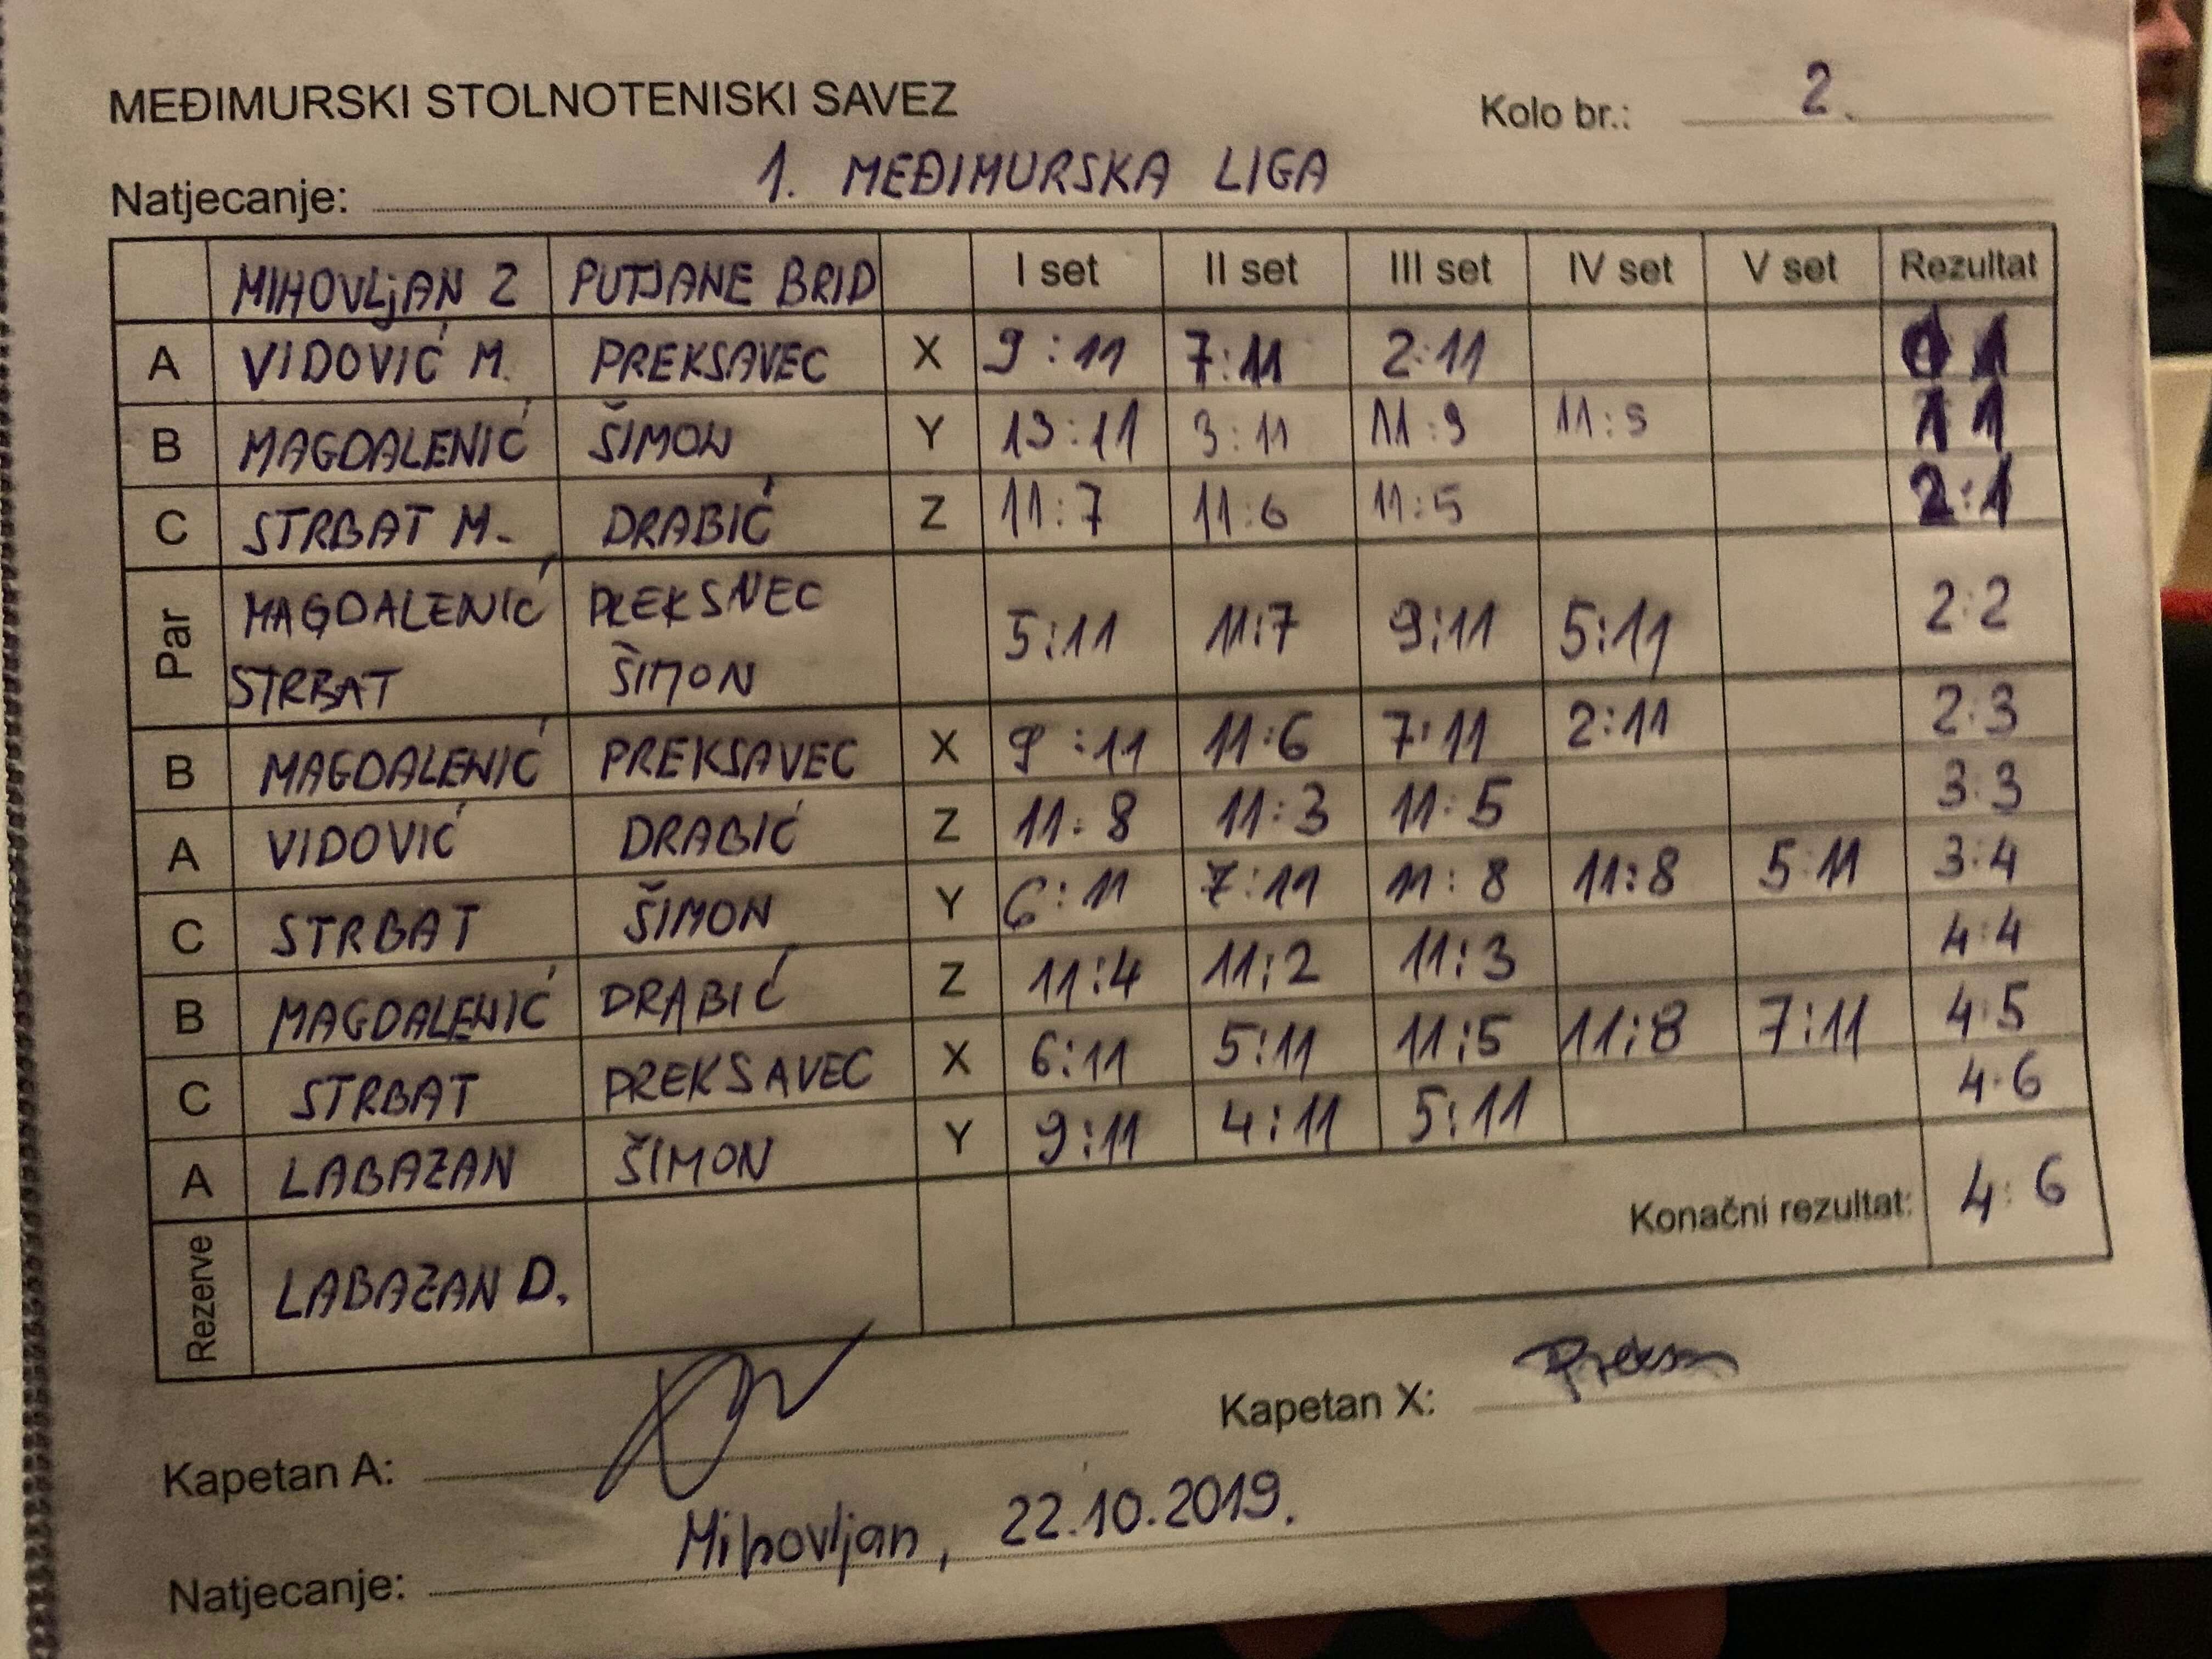 MEĐIMURSKI STOLNOTENISKI SAVEZ Kolo br.: 2.
Natjecanje: 1. MEĐIMURSKA LIGA
MIHOVLjAN 2 PUTJANE BRID I set II set III set IV set V set Rezultat
A VIDOVIĆ M. PREKSAVEC X 9:11 7:11 2:11 0 1
B MAGDALENIĆ ŠIMON Y 13:11 3:11 11:9 11:9 1 1
C STRBAT M. DRABIĆ Z 11:7 11:6 11:5 2:1
Par MAGDALENIĆ PREKSAVEC 5:11 11:7 9:11 5:11 2:2
STRBAT ŠIMON
B MAGDALENIĆ PREKSAVEC X 9:11 11:6 7:11 2:11 2:3
A VIDOVIĆ DRABIĆ Z 11:8 11:3 11:5 3:3
C STRBAT ŠIMON Y 6:11 7:11 11:8 11:8 5:11 3:4
B MAGDALENIĆ DRABIĆ Z 11:4 11:2 11:3 4:4
C STRBAT PREKSAVEC X 6:11 5:11 11:5 11:8 7:11 4:5
A LABAZAN ŠIMON Y 9:11 4:11 5:11 4:6
Konačni rezultat: 4:6
Rezerve LABAZAN D.
Kapetan A: Kapetan X:
Natjecanje: Mihovljan, 22.10.2019.